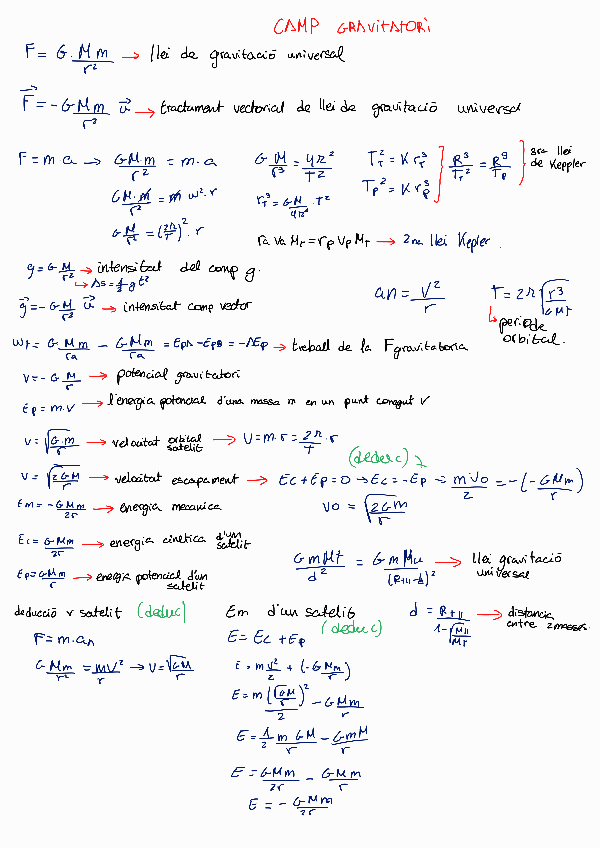 CAMP GRAVITATORI
F = G · M m / r² → llei de gravitació universal
F⃗ = - G M m / r³ u⃗ → tractament vectorial de llei de gravitació universal
F = m a → G M·m / r² = m·a
G M·m / r² = m w²·r
G M / r² = (2π/T)²·r
G M / r³ = 4π² / T²
r³ = G M / 4π² · T²
T_T² = K r_T³
T_P² = K r_P³
R³ / T_T² = R³ / T_P
3ra llei de Keppler
ra va M_T = r_P V_P M_T → 2na llei Kepler
g = G M / r² → intensitat del camp g.
→ Δs = 1/2 g t²
g⃗ = - G M / r³ u⃗ → intensitat camp vector
an = V² / r
T = 2π √(r³ / G M t)
→ periode orbital.
W_t = G M m / ra - G M m / ra = Epa - EpB = -ΔEp → treball de la F gravitatoria
V = - G M / r → potencial gravitatori
Ep = m·V → l'energia potencial d'una massa m en un punt conegut V
V = √(G·m / r) → velocitat orbital satelit → V = m·r = 2π / T · r
(deduc)
V = √(2GM / r) → velocitat escapament → Ec + Ep = 0 → Ec = -Ep = m Vo / 2 = - (- G M m / r)
Vo = √(2Gm / r)
Em = - G M m / 2r → energia mecanica
Ec = G M m / 2r → energia cinetica d'un satelit
Ep = G M m / r → energia potencial d'un satelit
G m Mt / d² = G m Mu / (R - d)² → llei gravitació universal
deducció v satelit (deduc)
F = m·an
G M m / r² = m V² / r → V = √(G M / r)
Em d'un satelit (deduc)
E = Ec + Ep
E = m v² / 2 + (- G M m / r)
E = m (√(G M / r))² / 2 - G M m / r
E = 1/2 m G M / r - G m M / r
E = G M m / 2r - G M m / r
E = - G M m / 2r
d = R / 1 - √(M / Mt) → distancia entre 2 masses.